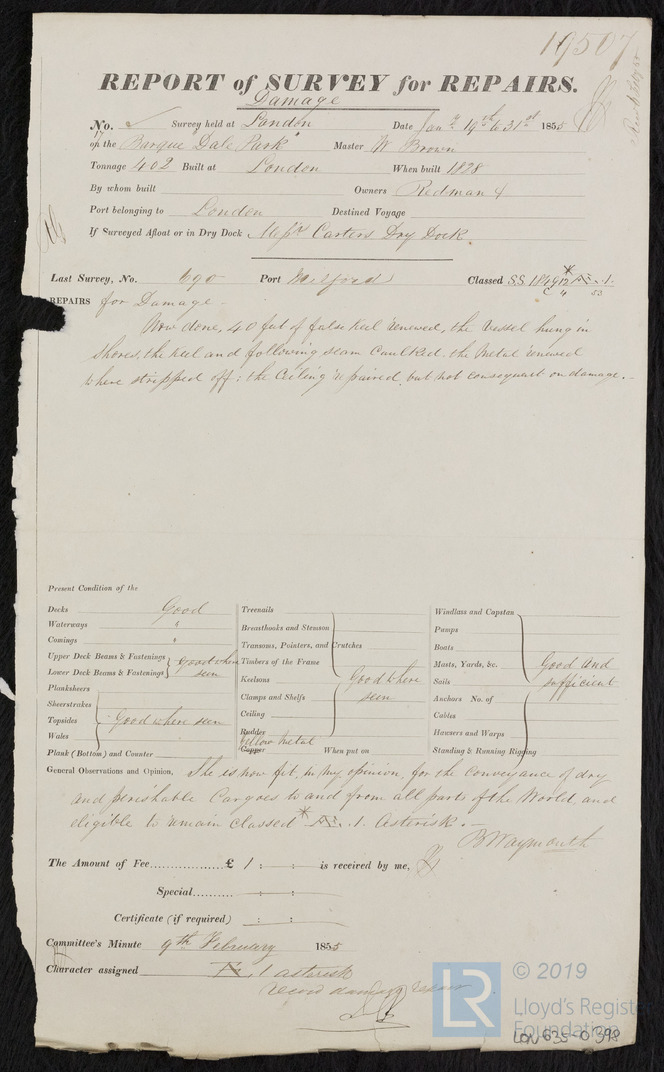 19507
REPORT of SURVEY for REPAIRS.
Damage
No. Survey held at London Date Jany 19th to 31st 1855
on the Barque "Dale Park" Master W Brown
Tonnage 402 Built at London When built 1828
By whom built Owners Redman &
Port belonging to London Destined Voyage
If Surveyed Afloat or in Dry Dock Messrs Carters Dry Dock
Last Survey, No. 690 Port Milford Classed S.S. 1849 12 Æ 1
C 4 53
REPAIRS for Damage
Now done, 40 feet of false keel renewed, the Vessel hung in
shores, the keel and following seam Caulked, the Metal renewed
where stripped off: the Ceiling repaired, but not consequent on damage.
Present Condition of the
Decks Good
Waterways "
Comings "
Upper Deck Beams & Fastenings
Lower Deck Beams & Fastenings Good where seen
Planksheers
Sheerstrakes
Topsides Good where seen
Wales
Plank (Bottom) and Counter
Treenails
Breasthooks and Stemson
Transoms, Pointers, and Crutches
Timbers of the Frame
Keelsons Good where seen
Clamps and Shelfs
Ceiling
Rudder
Yellow Metal
Copper When put on
Windlass and Capstan
Pumps
Boats
Masts, Yards, &c. Good and
Sails sufficient
Anchors No. of
Cables
Hawsers and Warps
Standing & Running Rigging
General Observations and Opinion, She is now fit, in my opinion, for the conveyance of dry
and perishable Cargoes to and from all parts of the World, and
eligible to remain classed * Æ .1. Asterisk.
B Waymouth
The Amount of Fee................£ 1 : : is received by me,
Special.......... : :
Certificate (if required) : :
Committee's Minute 9th February 1855
Character assigned Æ 1 asterisk
record damage repair
© 2019
LR
Lloyd's Register
Foundation
LON 635-0398